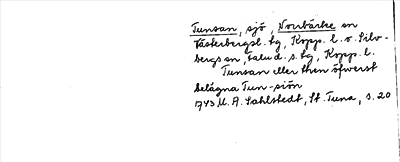 Tunsan, sjö, Norrbärke sn
Västerbergsl. hg, Kopp. l. o. Silv-
bergs sn, Falu d. s. hg, Kopp. l.
Tunsan eller then öfwerst
belägna Tun-siön
1743 M. A. Sahlstedt, St. Tuna, s. 20